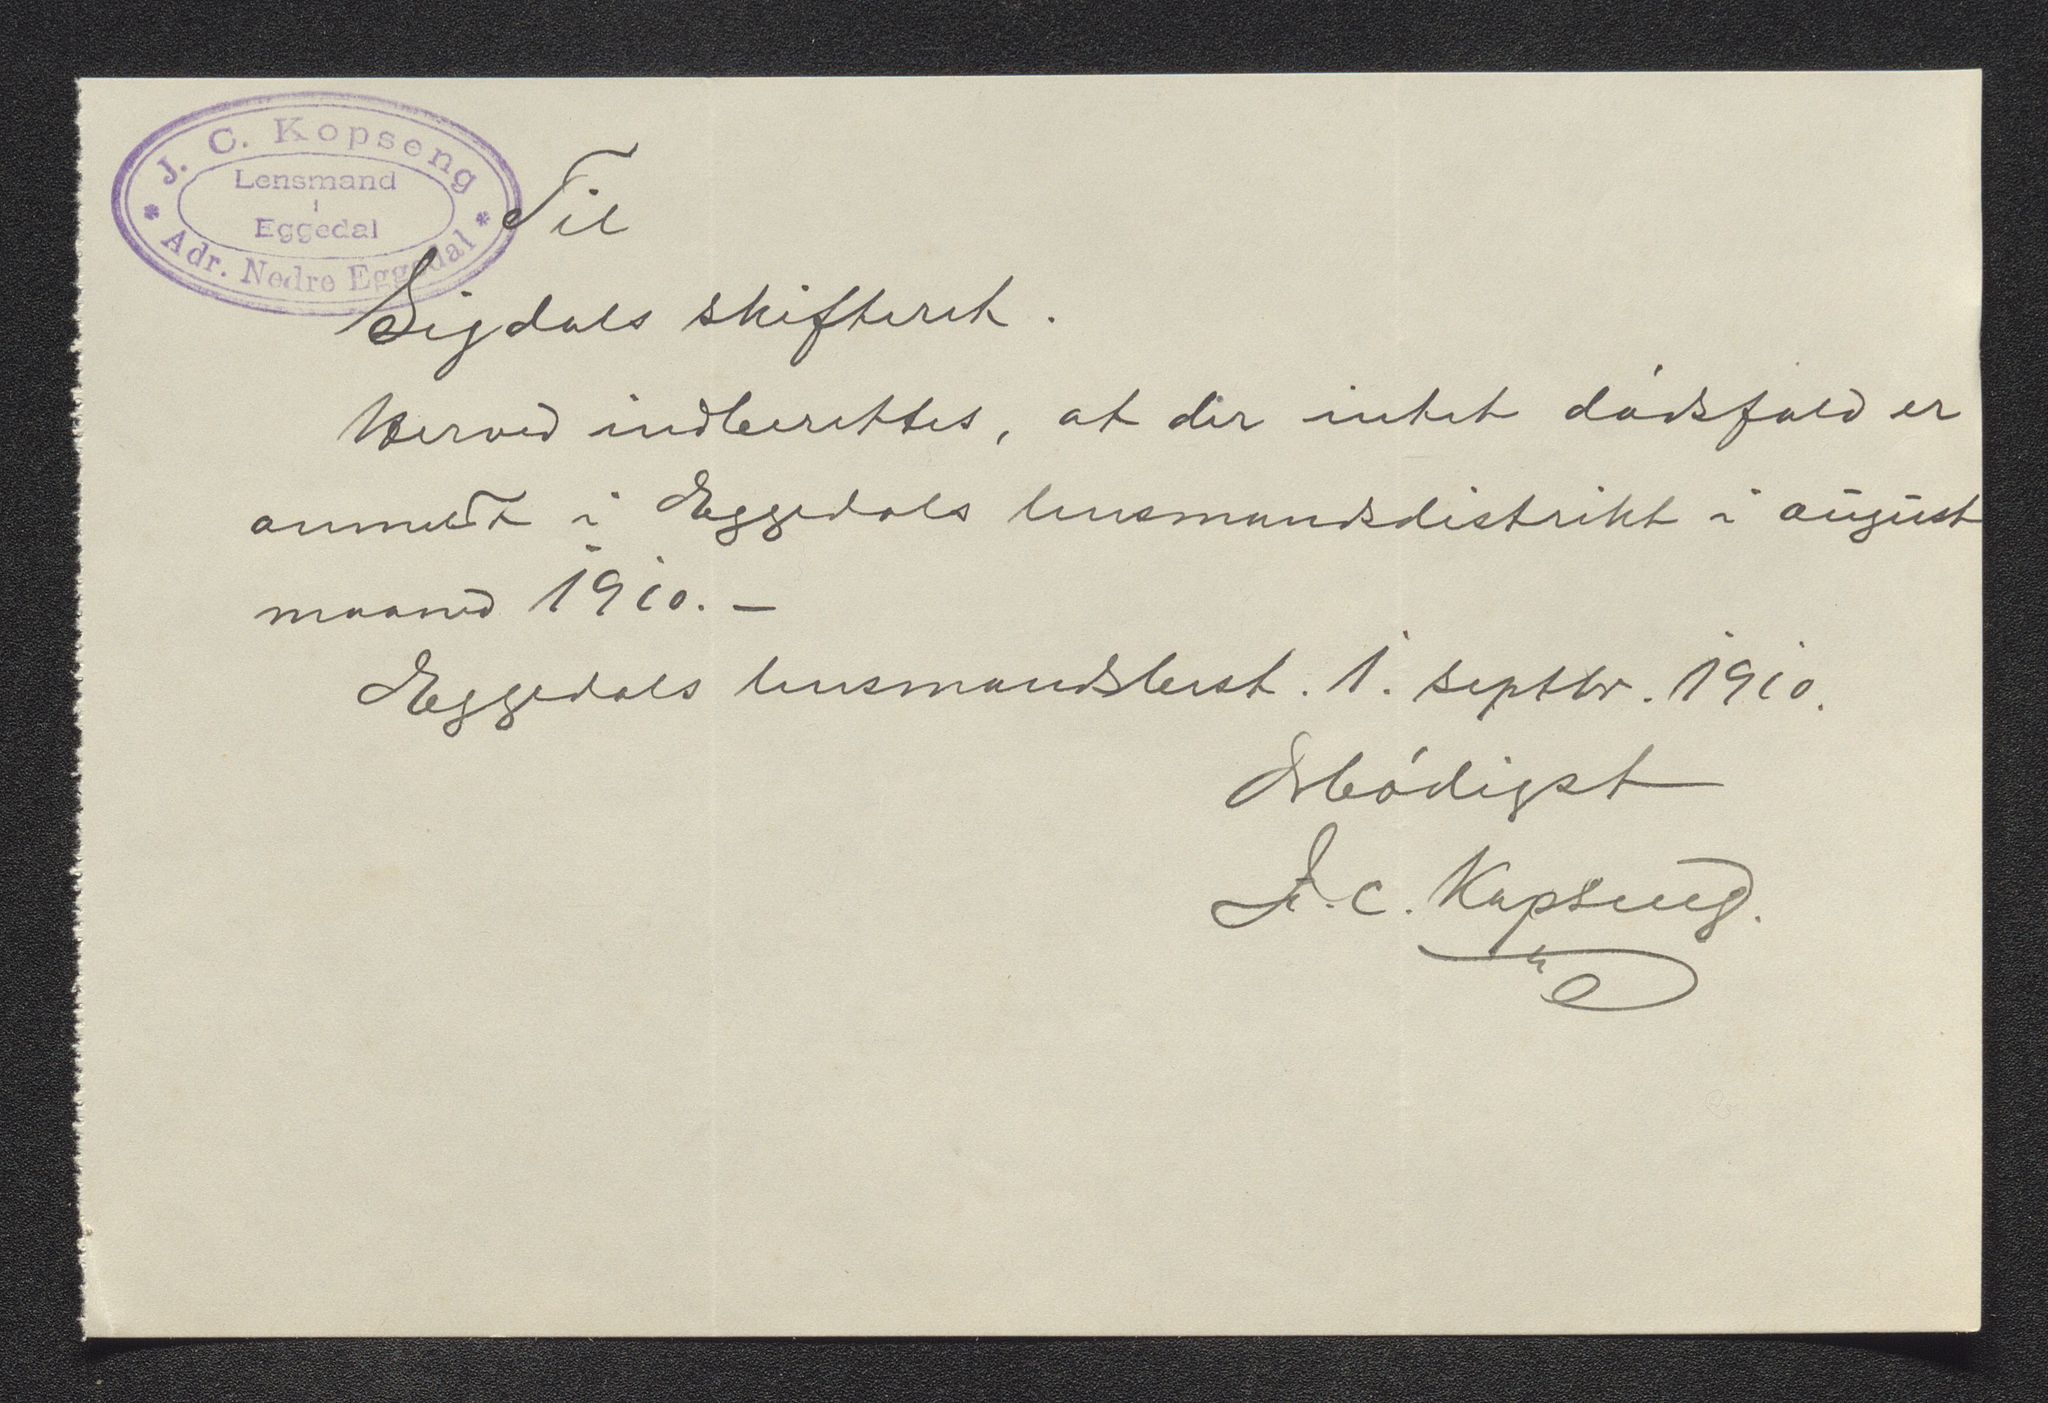 J. C. Kopseng
Lensmand
i
Eggedal
* Adr. Nedre Eggedal *
Til
Sigdals skifteret.
Herved indberettes, at der intet dódsfald er
anmeldt i Eggedals lensmandsdistrikt i august
maaned 1910. –
Eggedals lensmandsbest. 1. septbr. 1910.
Ærbódigst
J. C. Kopseng.